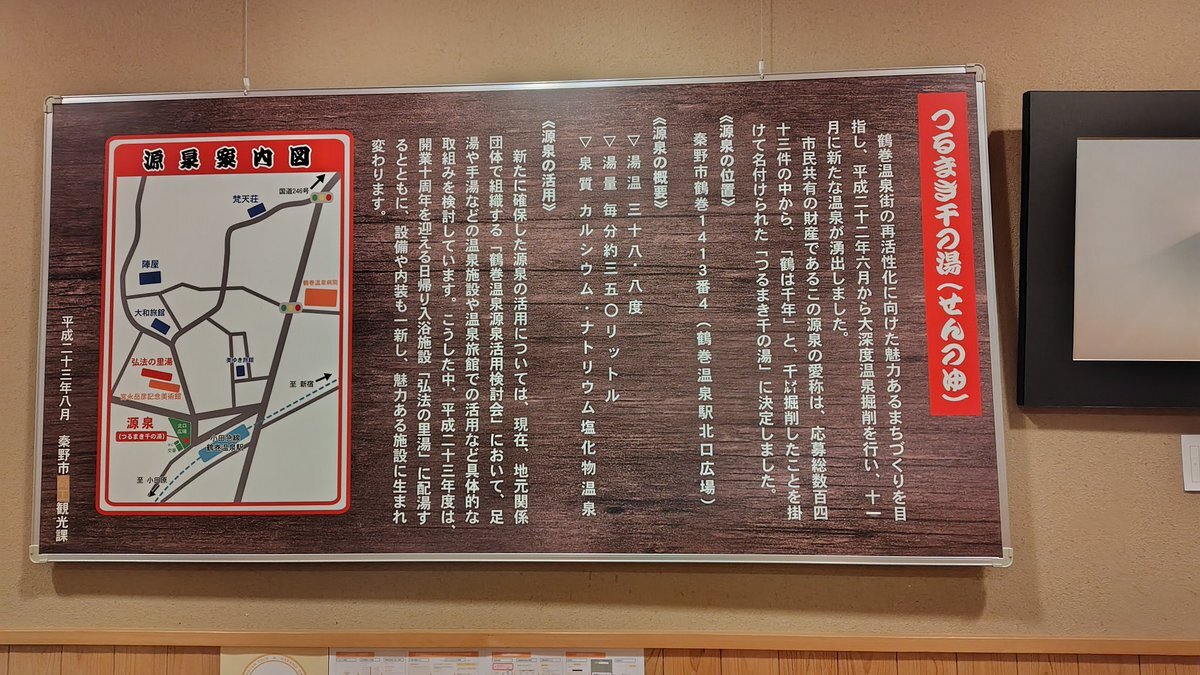 つるまき千の湯(せんのゆ)
鶴巻温泉街の再活性化に向けた魅力あるまちづくりを目
指し、平成二十二年六月から大深度温泉掘削を行い、十一
月に新たな温泉が湧出しました。
市民共有の財産であるこの源泉の愛称は、応募総数百四
十三件の中から、「鶴は千年」と、千㍍掘削したことを掛
けて名付けられた「つるまき千の湯」に決定しました。
《源泉の位置》
秦野市鶴巻1413番4(鶴巻温泉駅北口広場)
《源泉の概要》
▽湯温 三十八・八度
▽湯量 毎分約三五〇リットル
▽泉質 カルシウム・ナトリウム塩化物温泉
《源泉の活用》
新たに確保した源泉の活用については、現在、地元関係
団体で組織する「鶴巻温泉源泉活用検討会」において、足
湯や手湯などの温泉施設や温泉旅館での活用など具体的な
取組みを検討しています。こうした中、平成二十三年度は、
開業十周年を迎える日帰り入浴施設「弘法の里湯」に配湯す
るとともに、設備や内装も一新し、魅力ある施設に生まれ
変わります。
源泉案内図
国道246号
梵天荘
陣屋
鶴巻温泉病院
大和旅館
美ゆき旅館
弘法の里湯
宮永岳彦記念美術館
至 新宿
源泉
(つるまき千の湯)
北口
広場
交番
小田急線
鶴巻温泉駅
至 小田原
平成二十三年八月 秦野市 観光課